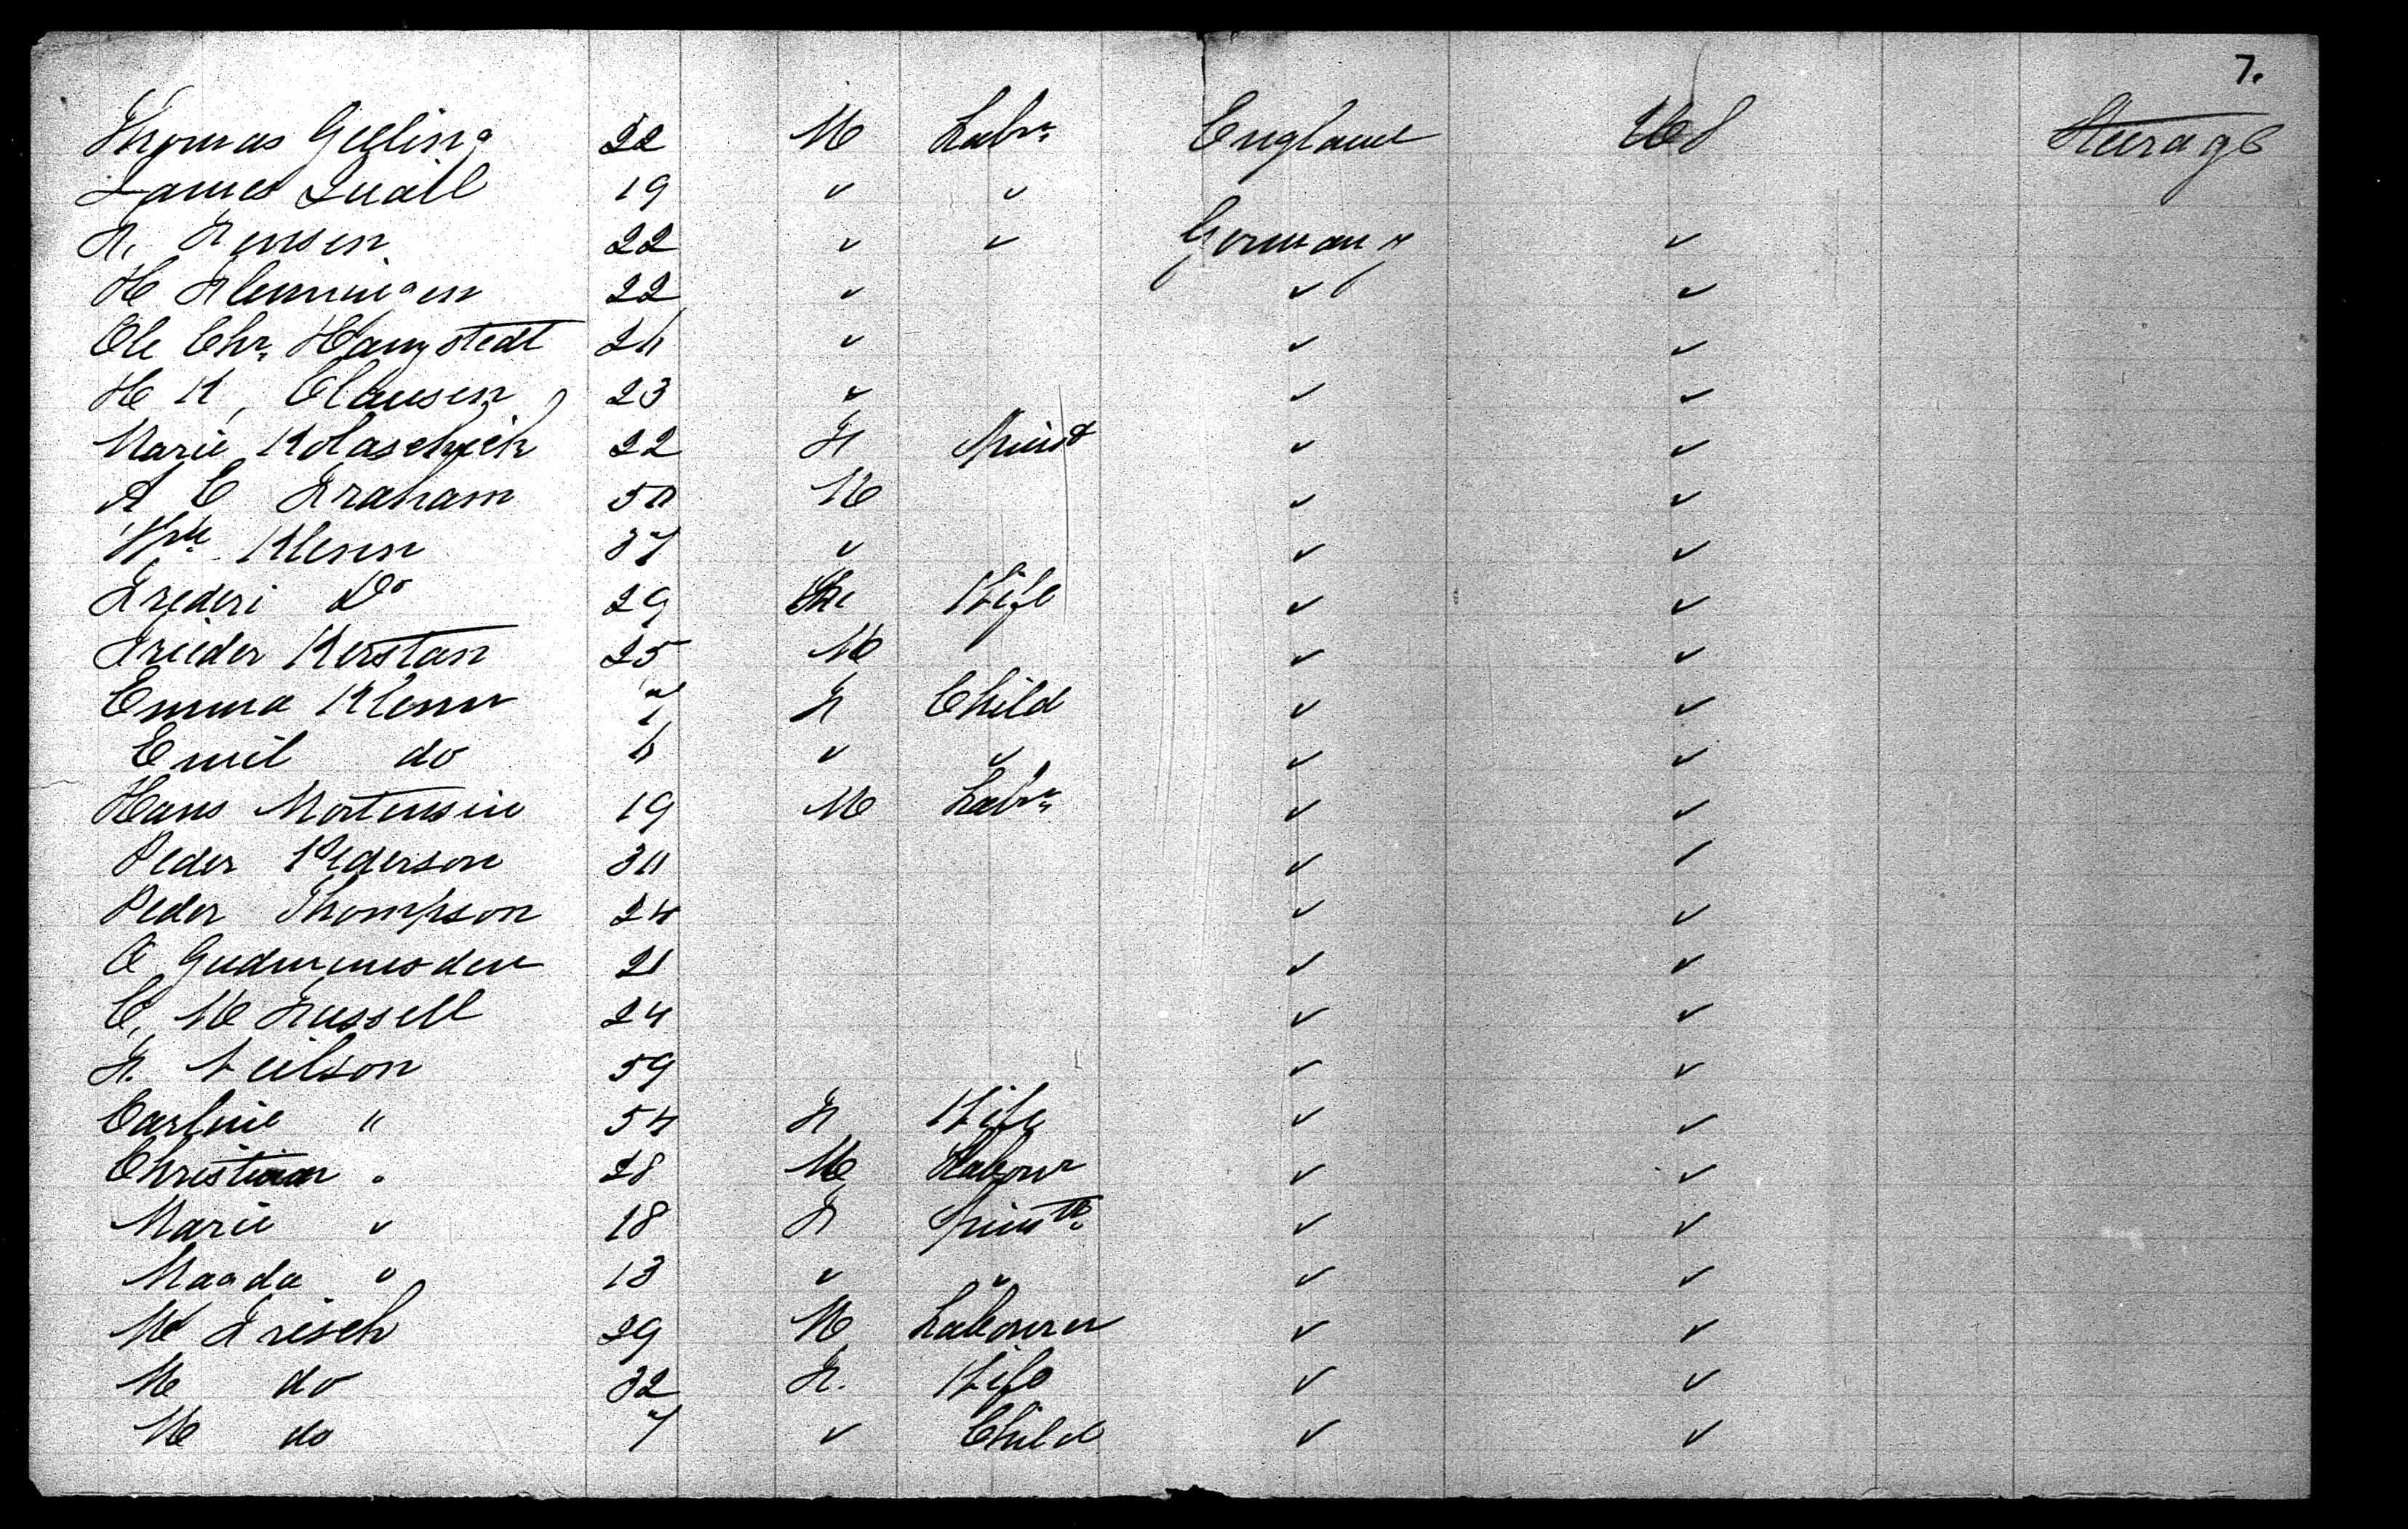 7.
Thomas Gelling 22 M Labr England US Steerage
James Quail 19 " "
F. Jensen 22 " " Germany "
H Flemingen 22 " " "
Ole Chr. Hamstedt 24 " " "
H K, Clausen 23 " " "
Marie Kolaschick 22 F Spinst " "
A C Graham 50 M " "
Wm Klenn 37 " " "
Frederi Do 29 Wife " "
Frieder Kerstan 25 M " "
Emma Klenn 7 F Child " "
Emil do 6 " " " "
Hans Mortensin 19 M Labr " "
Peder Pederson 30 " "
Peder Thompson 24 " "
O Gudmunsden 21 " "
C, M Russell 24 " "
F. Neilson 59 " "
Carline " 54 F Wife " "
Christian " 28 M Labour " "
Marie " 18 F Spinstr " "
Magda " 13 " " " "
M Frisch 29 M Labourer " "
M do 32 F. Wife " "
M do 7 " Child " "